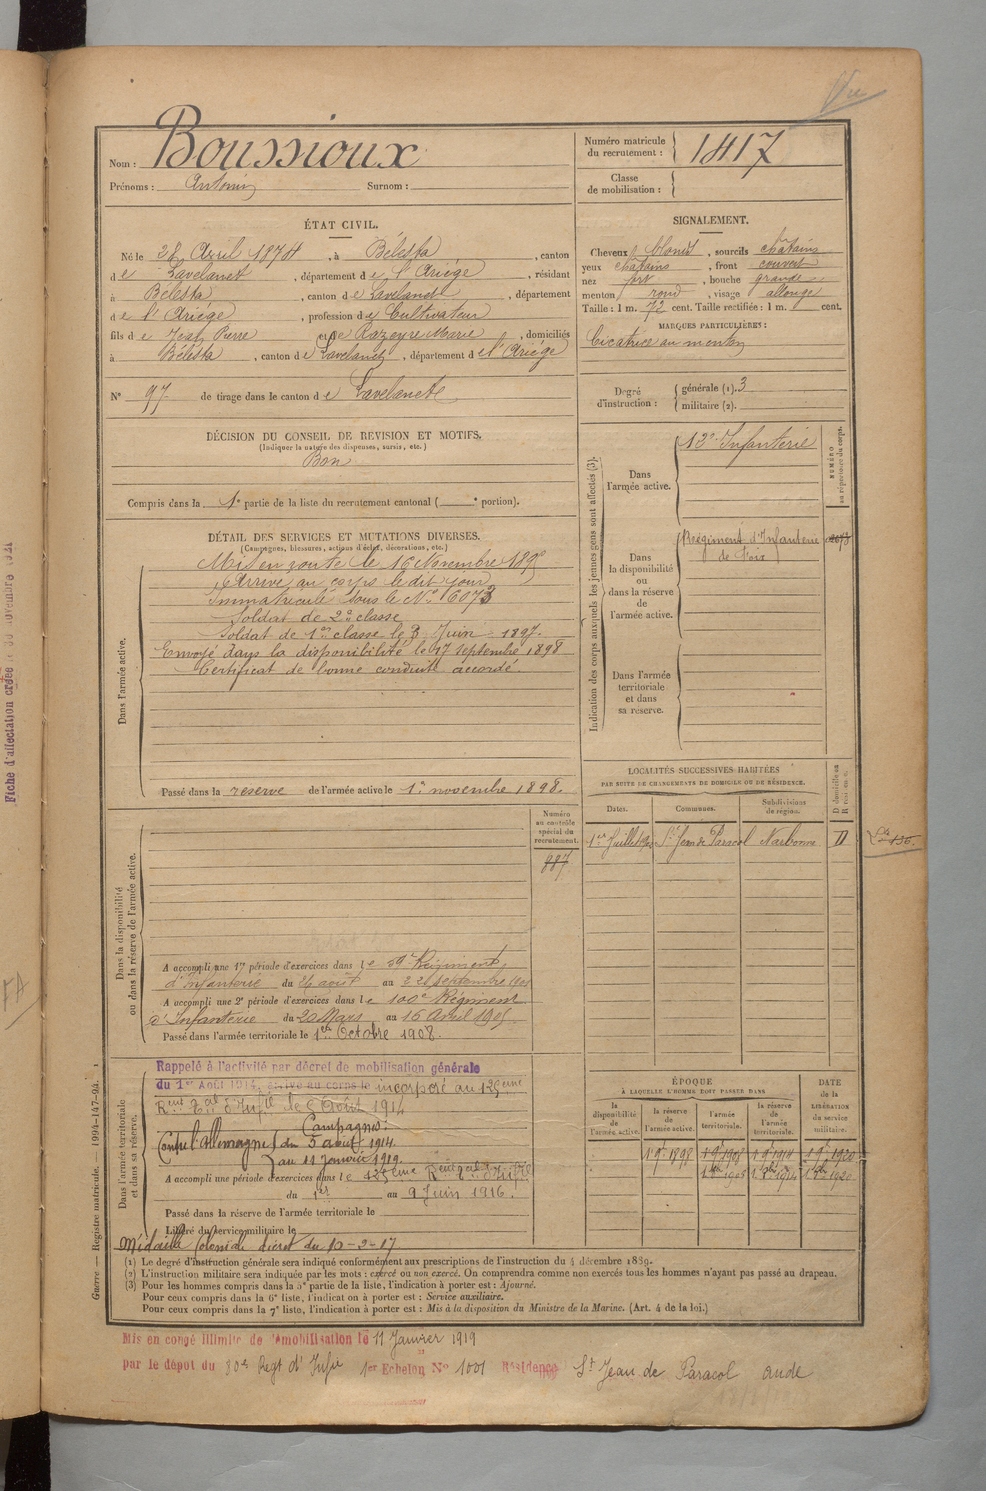 Vu
Nom : Boussioux
Numéro matricule du recrutement : 1417
Prénoms : Antonin Surnom :
Classe de mobilisation :
ÉTAT CIVIL.
Né le 28 Avril 1874, à Bélesta, canton
de Lavelanet, département de l'Ariége, résidant
à Bélesta, canton de Lavelanet, département
de l'Ariége, profession de Cultivateur
fils de Jean Pierre et de Razeyre Marie, domiciliés
à Bélesta, canton de Lavelanet, département de l'Ariége
N° 97 de tirage dans le canton de Lavelanet
SIGNALEMENT.
Cheveux blonds, sourcils châtains
yeux châtains, front couvert
nez fort, bouche grande
menton rond, visage allongé
Taille : 1 m. 72 cent. Taille rectifiée : 1 m. cent.
MARQUES PARTICULIÈRES :
Cicatrice au menton
Degré d'instruction : générale (1). 3
militaire (2).
DÉCISION DU CONSEIL DE REVISION ET MOTIFS.
(Indiquer la nature des dispenses, sursis, etc.)
Bon
Compris dans la 1e partie de la liste du recrutement cantonal ( e portion).
DÉTAIL DES SERVICES ET MUTATIONS DIVERSES.
(Campagnes, blessures, actions d'éclat, décorations, etc.)
Dans l'armée active.
Mis en route le 16 Novembre 189
Arrivé au corps le dit jour
Immatriculé sous le N° 6073
Soldat de 2e classe
Soldat de 1re classe le 3 Juin 1897.
Envoyé dans la disponibilité le 17 septembre 1898
Certificat de bonne conduite accordé.
Passé dans la réserve de l'armée active le 1er novembre 1898.
Indication des corps auxquels les jeunes gens sont affectés (3).
NUMÉRO au répertoire du corps.
Dans l'armée active.
Infanterie
Dans la disponibilité ou dans la réserve de l'armée active.
Régiment d'Infanterie
de Foix
Dans l'armée territoriale et dans sa réserve.
LOCALITÉS SUCCESSIVES HABITÉES
PAR SUITE DE CHANGEMENTS DE DOMICILE OU DE RÉSIDENCE.
Dates. Communes. Subdivisions de région. D domicile ou R résidence.
1er Juillet St Jean de Paracol Narbonne D
Dans la disponibilité ou dans la réserve de l'armée active.
Numéro au contrôle spécial du recrutement.
887
A accompli une 1re période d'exercices dans le 59e Régiment
d'Infanterie du 26 août au 22 septembre
A accompli une 2e période d'exercices dans le 100e Régiment
d'Infanterie du 20 Mars au 16 Avril 1905
Passé dans l'armée territoriale le 1er Octobre 1908.
Dans l'armée territoriale et dans sa réserve.
Rappelé à l'activité par décret de mobilisation générale
du 1er Août 1914, arrivé au corps le incorporé au 129eme
Rgt Tal d'Infie le 5 Août 1914
Campagnes:
Contre l'Allemagne du 5 août 1914.
au 11 Janvier 1919.
A accompli une période d'exercices dans le
du 1er au 9 Juin 1916.
Passé dans la réserve de l'armée territoriale le
Libéré du service militaire le
Médaille Coloniale décret du
ÉPOQUE
À LAQUELLE L'HOMME DOIT PASSER DANS
DATE de la LIBÉRATION du service militaire.
la disponibilité de l'armée active. la réserve de l'armée active. l'armée territoriale. la réserve de l'armée territoriale.
1 9bre 1898 1 9bre 1908 1 9bre 1914 1 9bre 1920
1 8bre 1908 1 8bre 1914 1 8bre 1920
(1) Le degré d'instruction générale sera indiqué conformément aux prescriptions de l'instruction du 4 décembre 1889.
(2) L'instruction militaire sera indiquée par les mots : exercé ou non exercé. On comprendra comme non exercés tous les hommes n'ayant pas passé au drapeau.
(3) Pour les hommes compris dans la 5e partie de la liste, l'indication à porter est : Ajourné.
Pour ceux compris dans la 6e liste, l'indication à porter est : Service auxiliaire.
Pour ceux compris dans la 7e liste, l'indication à porter est : Mis à la disposition du Ministre de la Marine. (Art. 4 de la loi.)
Guerre — Registre matricule. — 1994-147-94.
Mis en congé illimité de démobilisation le 11 Janvier 1919
par le dépôt du 80e Regt d'Infie 1er Echelon N° 1001 Résidence St Jean de Paracol Aude
Fiche d'affectation créée le 30 novembre 1921
FA